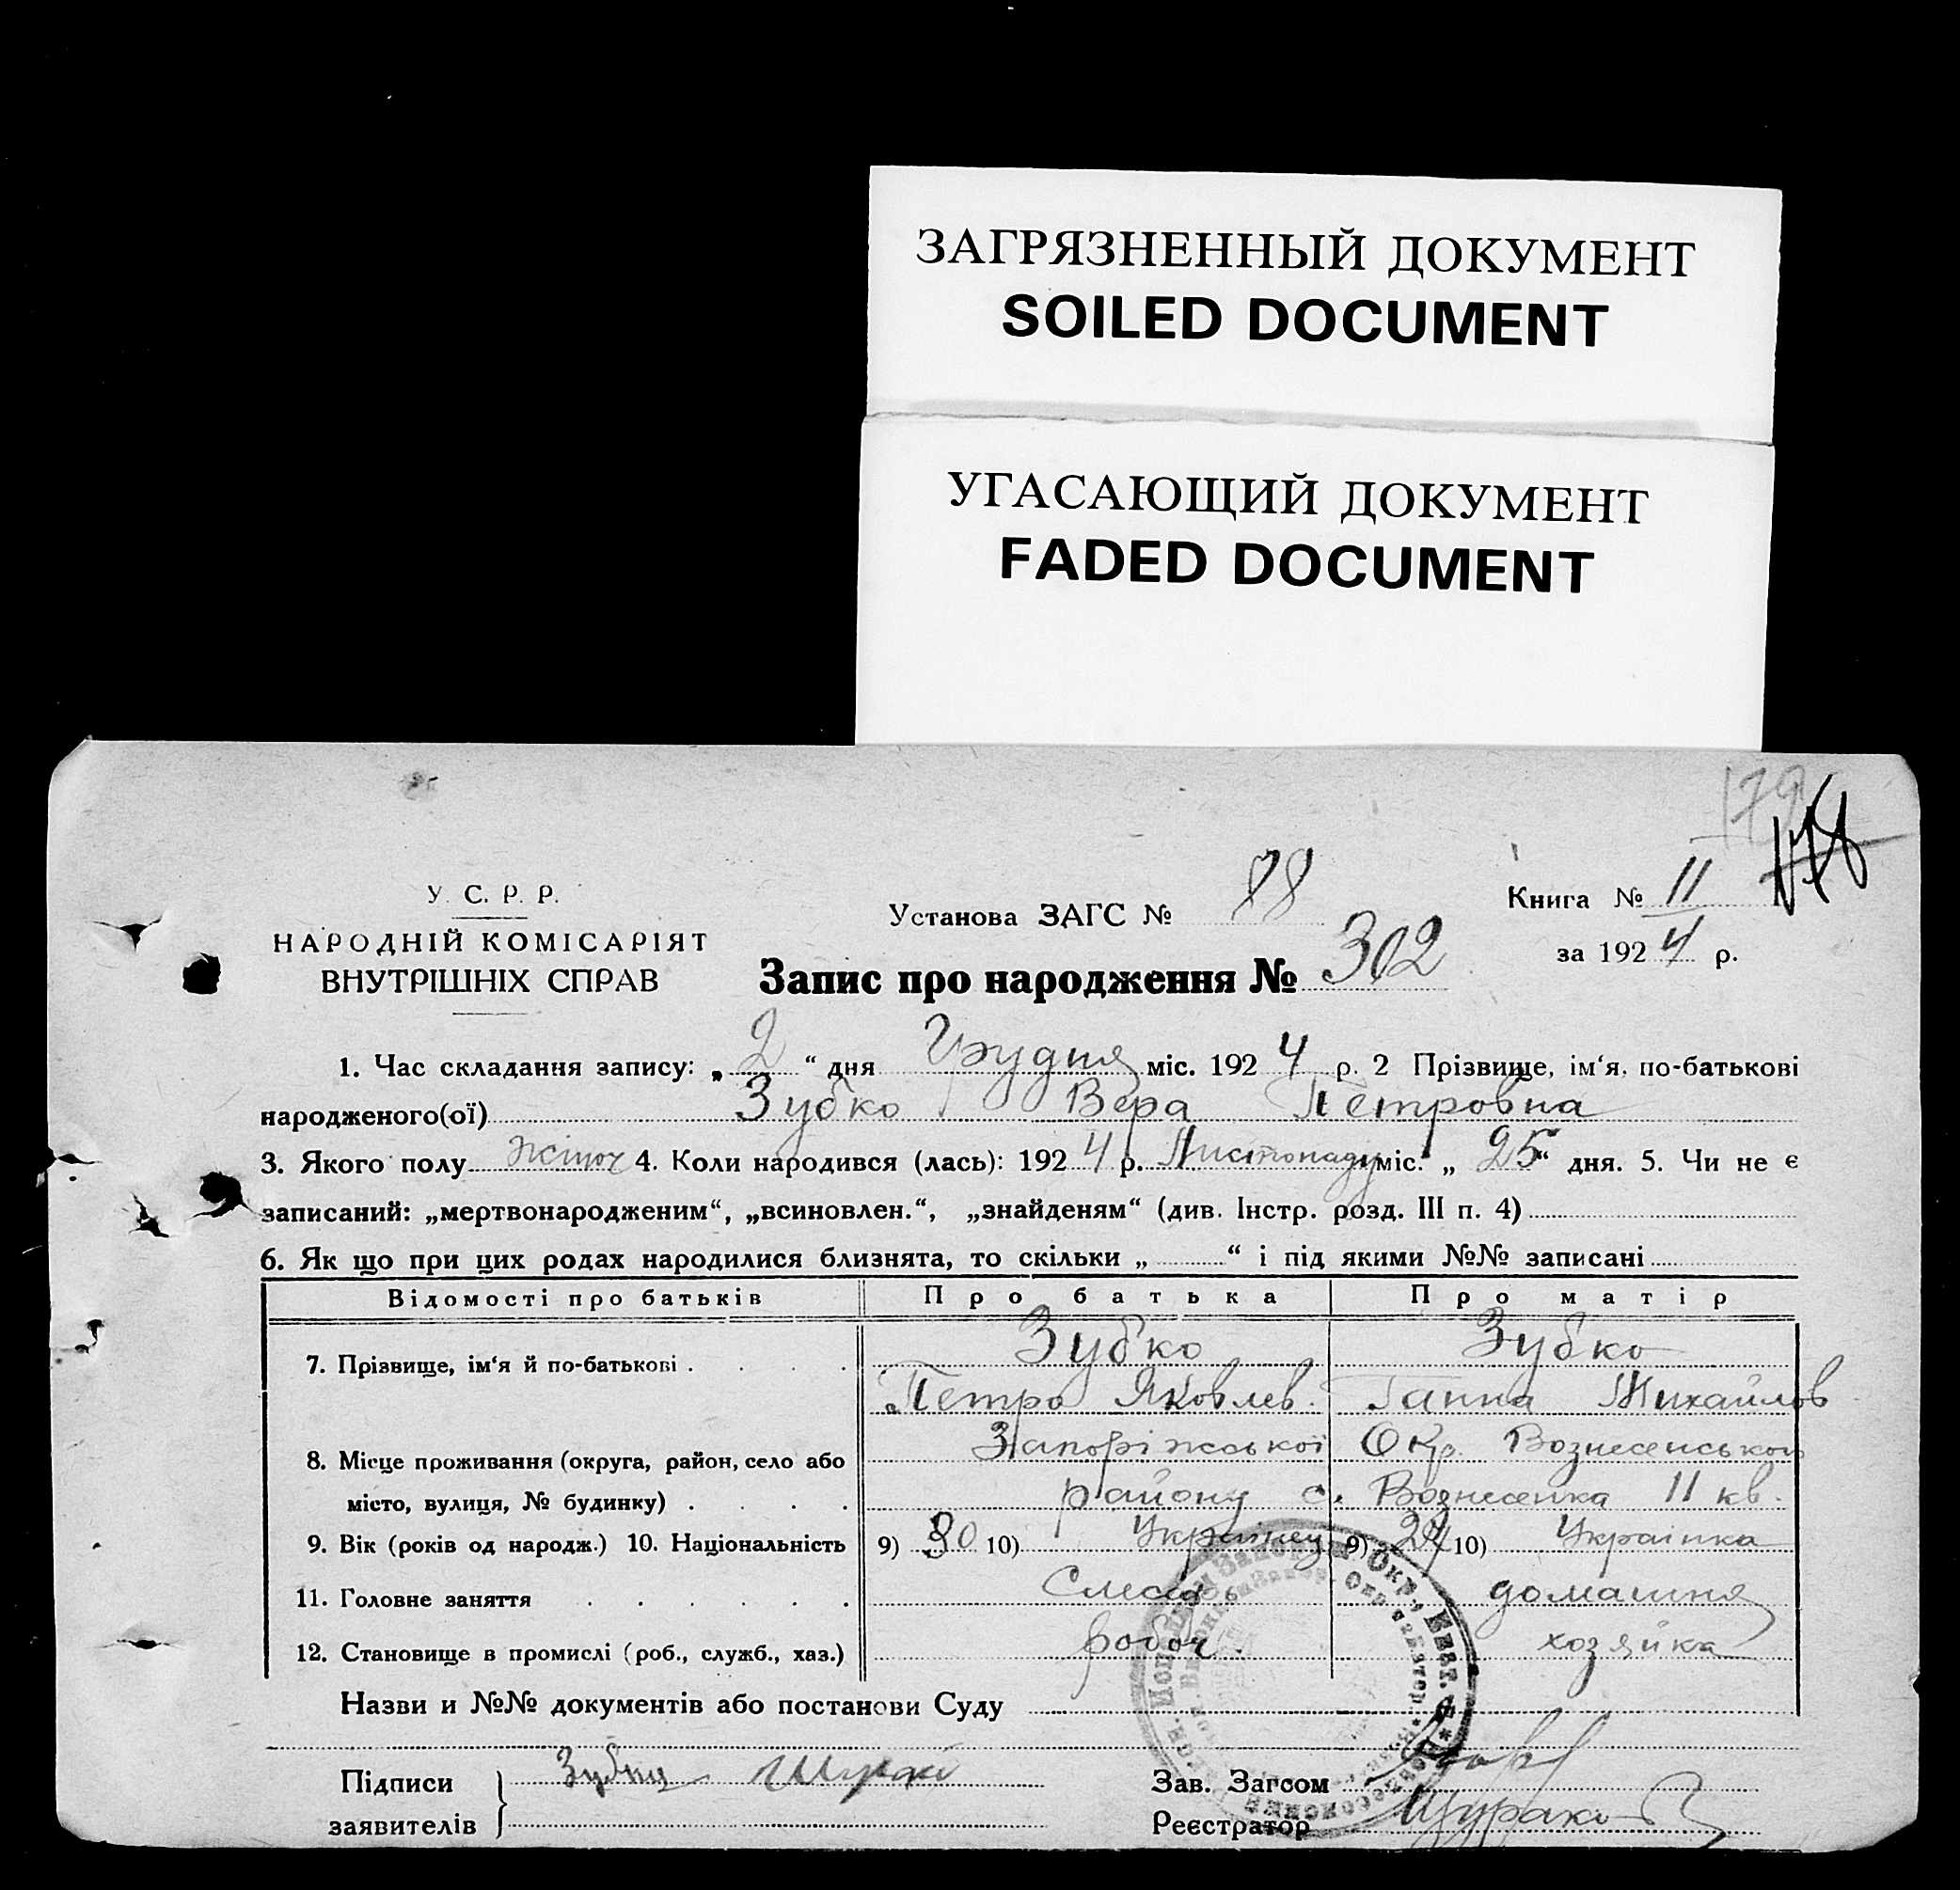 ЗАГРЯЗНЕННЫЙ ДОКУМЕНТ
SOILED DOCUMENT
УГАСАЮЩИЙ ДОКУМЕНТ
FADED DOCUMENT
179
178
У. С. Р. Р.
НАРОДНІЙ КОМІСАРІЯТ
ВНУТРІШНІХ СПРАВ
Установа ЗАГС № 88
Книга № 11
за 1924 р.
Запис про народження № 302
1. Час складання запису: „2“ дня Грудня міс. 1924 р. 2 Прізвище, ім‘я, по-батькові
народженого(ої) Зубко Вера Петровна
3. Якого полу жіноч 4. Коли народився (лась): 1924 р. Листопаду міс. „25“ дня. 5. Чи не є
записаний: „мертвонародженим“, „всиновлен.“, „знайденям“ (див. Інстр. розд. III п. 4)
6. Як що при цих родах народилися близнята, то скільки „ “ і під якими №№ записані
Відомості про батьків Про батька Про матір
7. Прізвище, ім‘я й по-батькові . Зубко Зубко
Петро Яковлев. Ганна Михайлов
8. Місце проживання (округа, район, село або Запоріжської Окр. Вознесенського
місто, вулиця, № будинку) . районy с. Вознесенка 11 кв.
9. Вік (років од народж.) 10. Національність 9) 30 10) Українец 9) 24 10) Українка
11. Головне заняття Слесар домашня
12. Становище в промислі (роб., служб., хаз.) робоч. хозяйка
Назви и №№ документів або постанови Суду
Підписи Зубко Зав. Загсом
заявителів Реєстратор